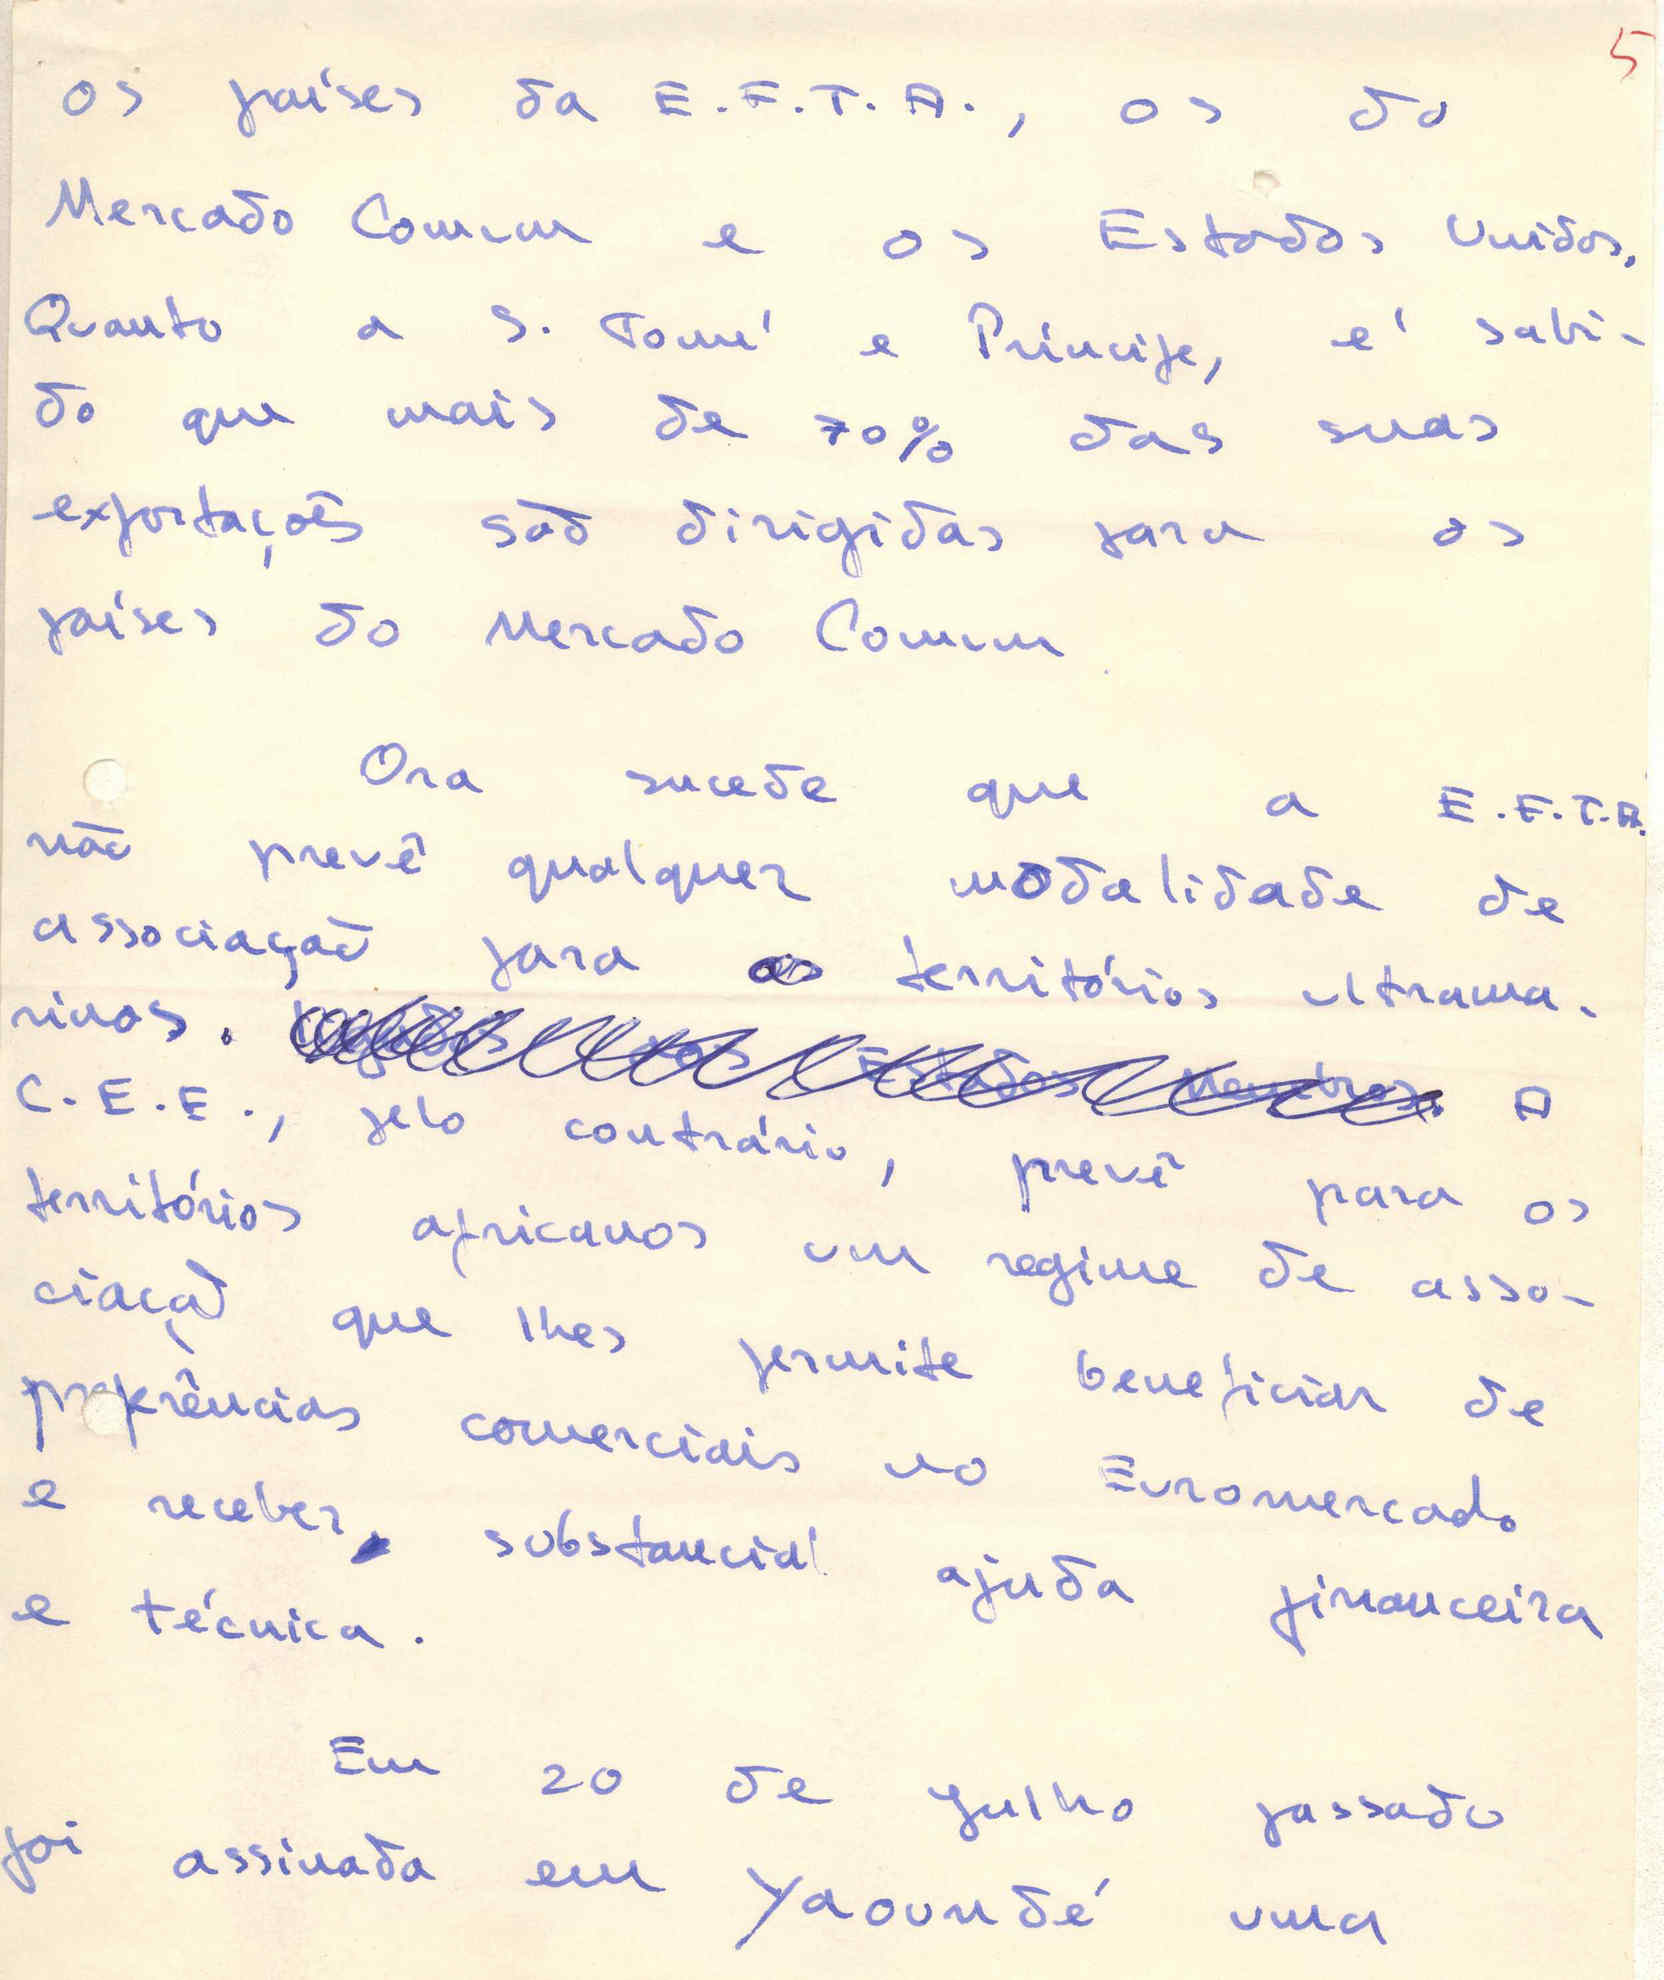 5
os países da E.F.T.A., os do
Mercado Comum e os Estados Unidos.
Quanto a S. Tomé e Príncipe, é sabi-
do que mais de 70% das suas
exportações são dirigidas para os
países do Mercado Comum
Ora sucede que a E.F.T.A.
não prevê qualquer modalidade de
associação para os territórios ultrama-
rinos. dos Estados Membros. A
C.E.E., pelo contrário, prevê para os
territórios africanos um regime de asso-
ciação que lhes permite beneficiar de
preferências comerciais no Euromercado
e receber substancial ajuda financeira
e técnica.
Em 20 de Julho passado
foi assinada em Yaoundé uma